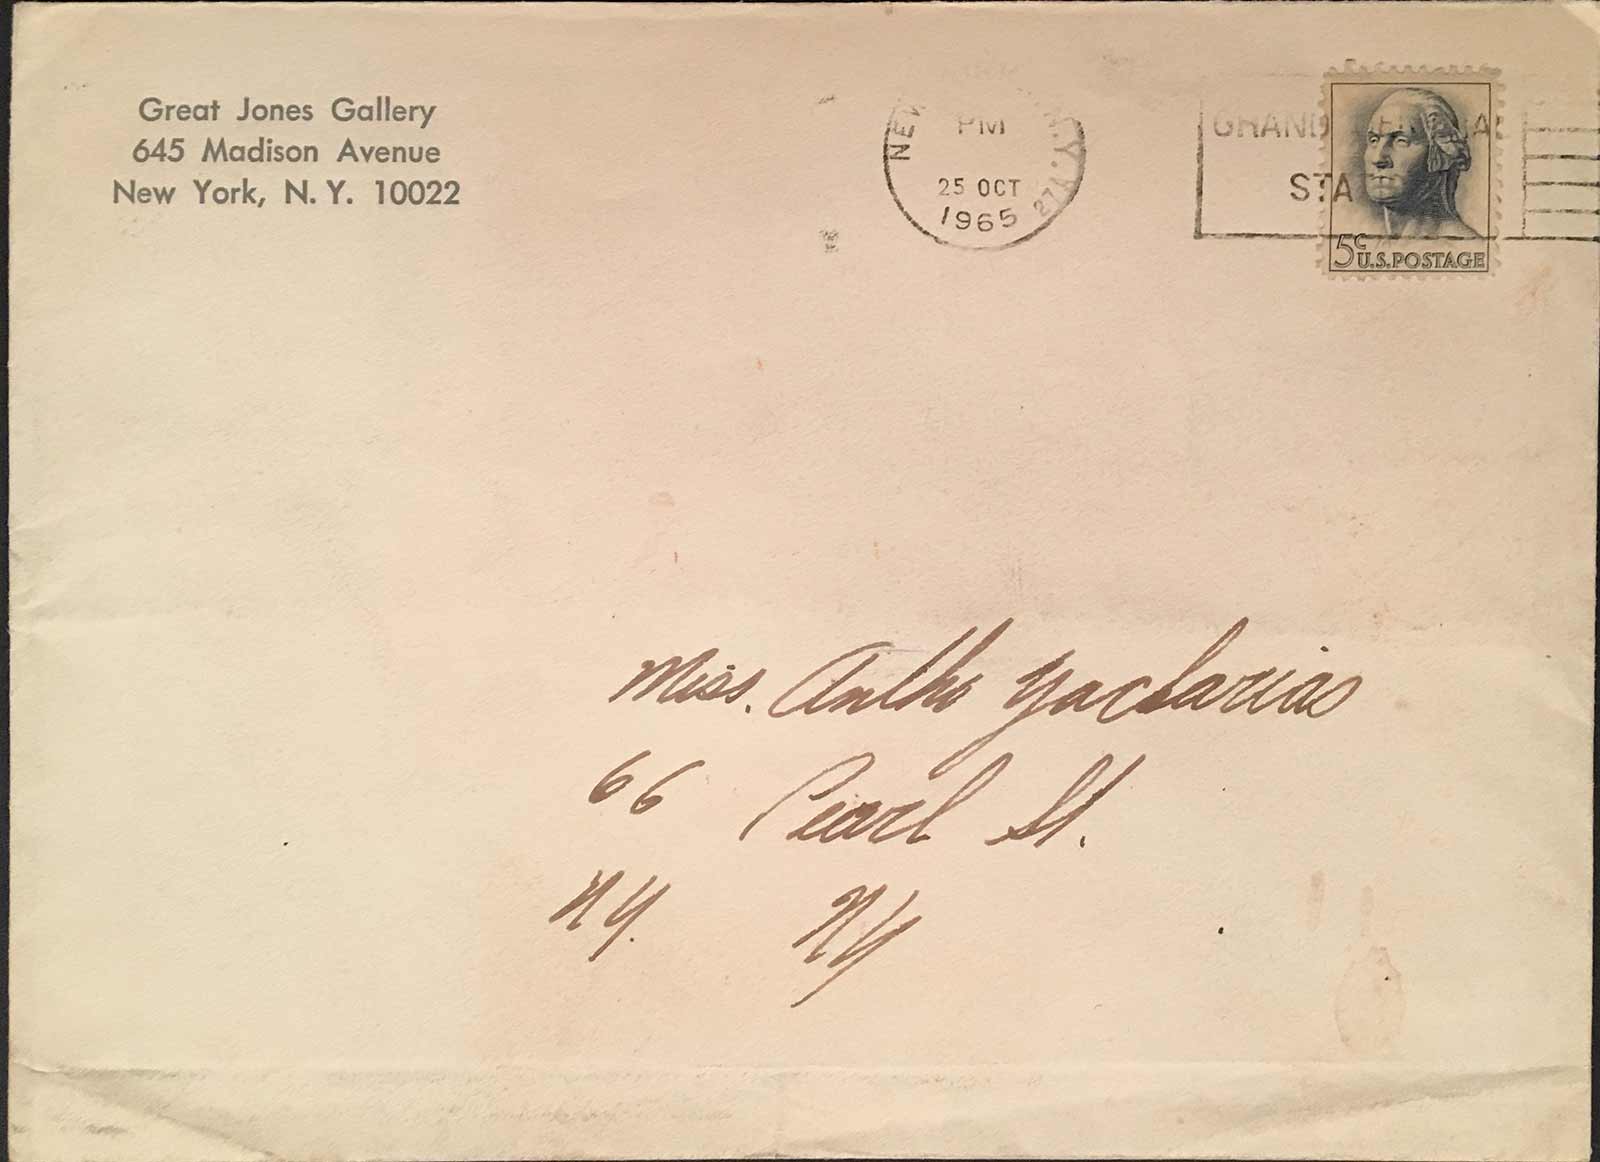 Great Jones Gallery
645 Madison Avenue
New York, N. Y. 10022
NEW N.Y.
PM
25 OCT
1965
GRAND
STA
5c U.S.POSTAGE
Miss. Antho Yacharias
66 Pearl St.
NY. NY